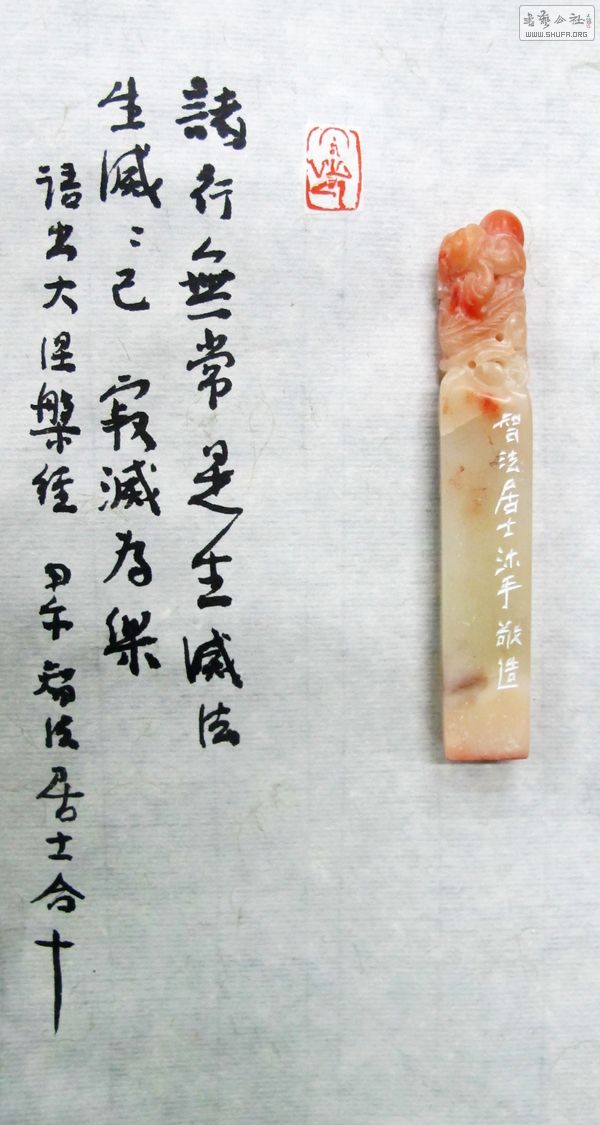 諸行無常是生滅法
生滅〻已 寂滅為樂
语出大涅槃经 甲午智法居士合十
智法居士沐手敬造
書藝公社
WWW.SHUFA.ORG